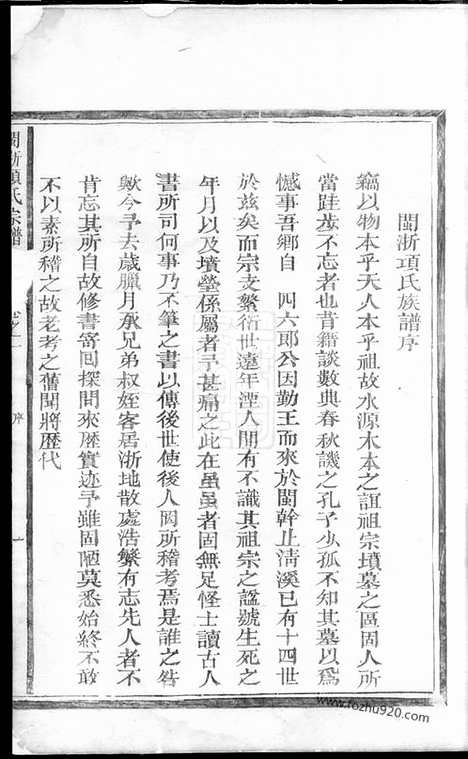 閩浙項氏族譜序
竊以物本乎天人本乎祖故水源木本之誼祖宗墳墓之區固人所
當跬步不忘者也昔籍談數典春秋譏之孔子少孤不知其墓以爲
憾事吾鄉自　四六郎公因勤王而來於閩幹止淸溪已有十四世
於兹矣而宗支繁衍世遠年湮人間有不識其祖宗之諡號生死之
年月以及墳塋係屬者予甚痛之此在虽虽者固無足怪士讀古人
書所司何事乃不筆之書以傳後世使後人罔所稽考焉是誰之咎
歟今予去歲臘月承兄弟叔姪客居浙地散處浩繁有志先人者不
肯忘其所自故修書寄囘探問來歷實迹予雖固陋莫悉始終不敢
不以素所稽之故老考之舊聞將歷代
閩浙項氏宗譜
卷之一
序
一
www.fozhu920.com